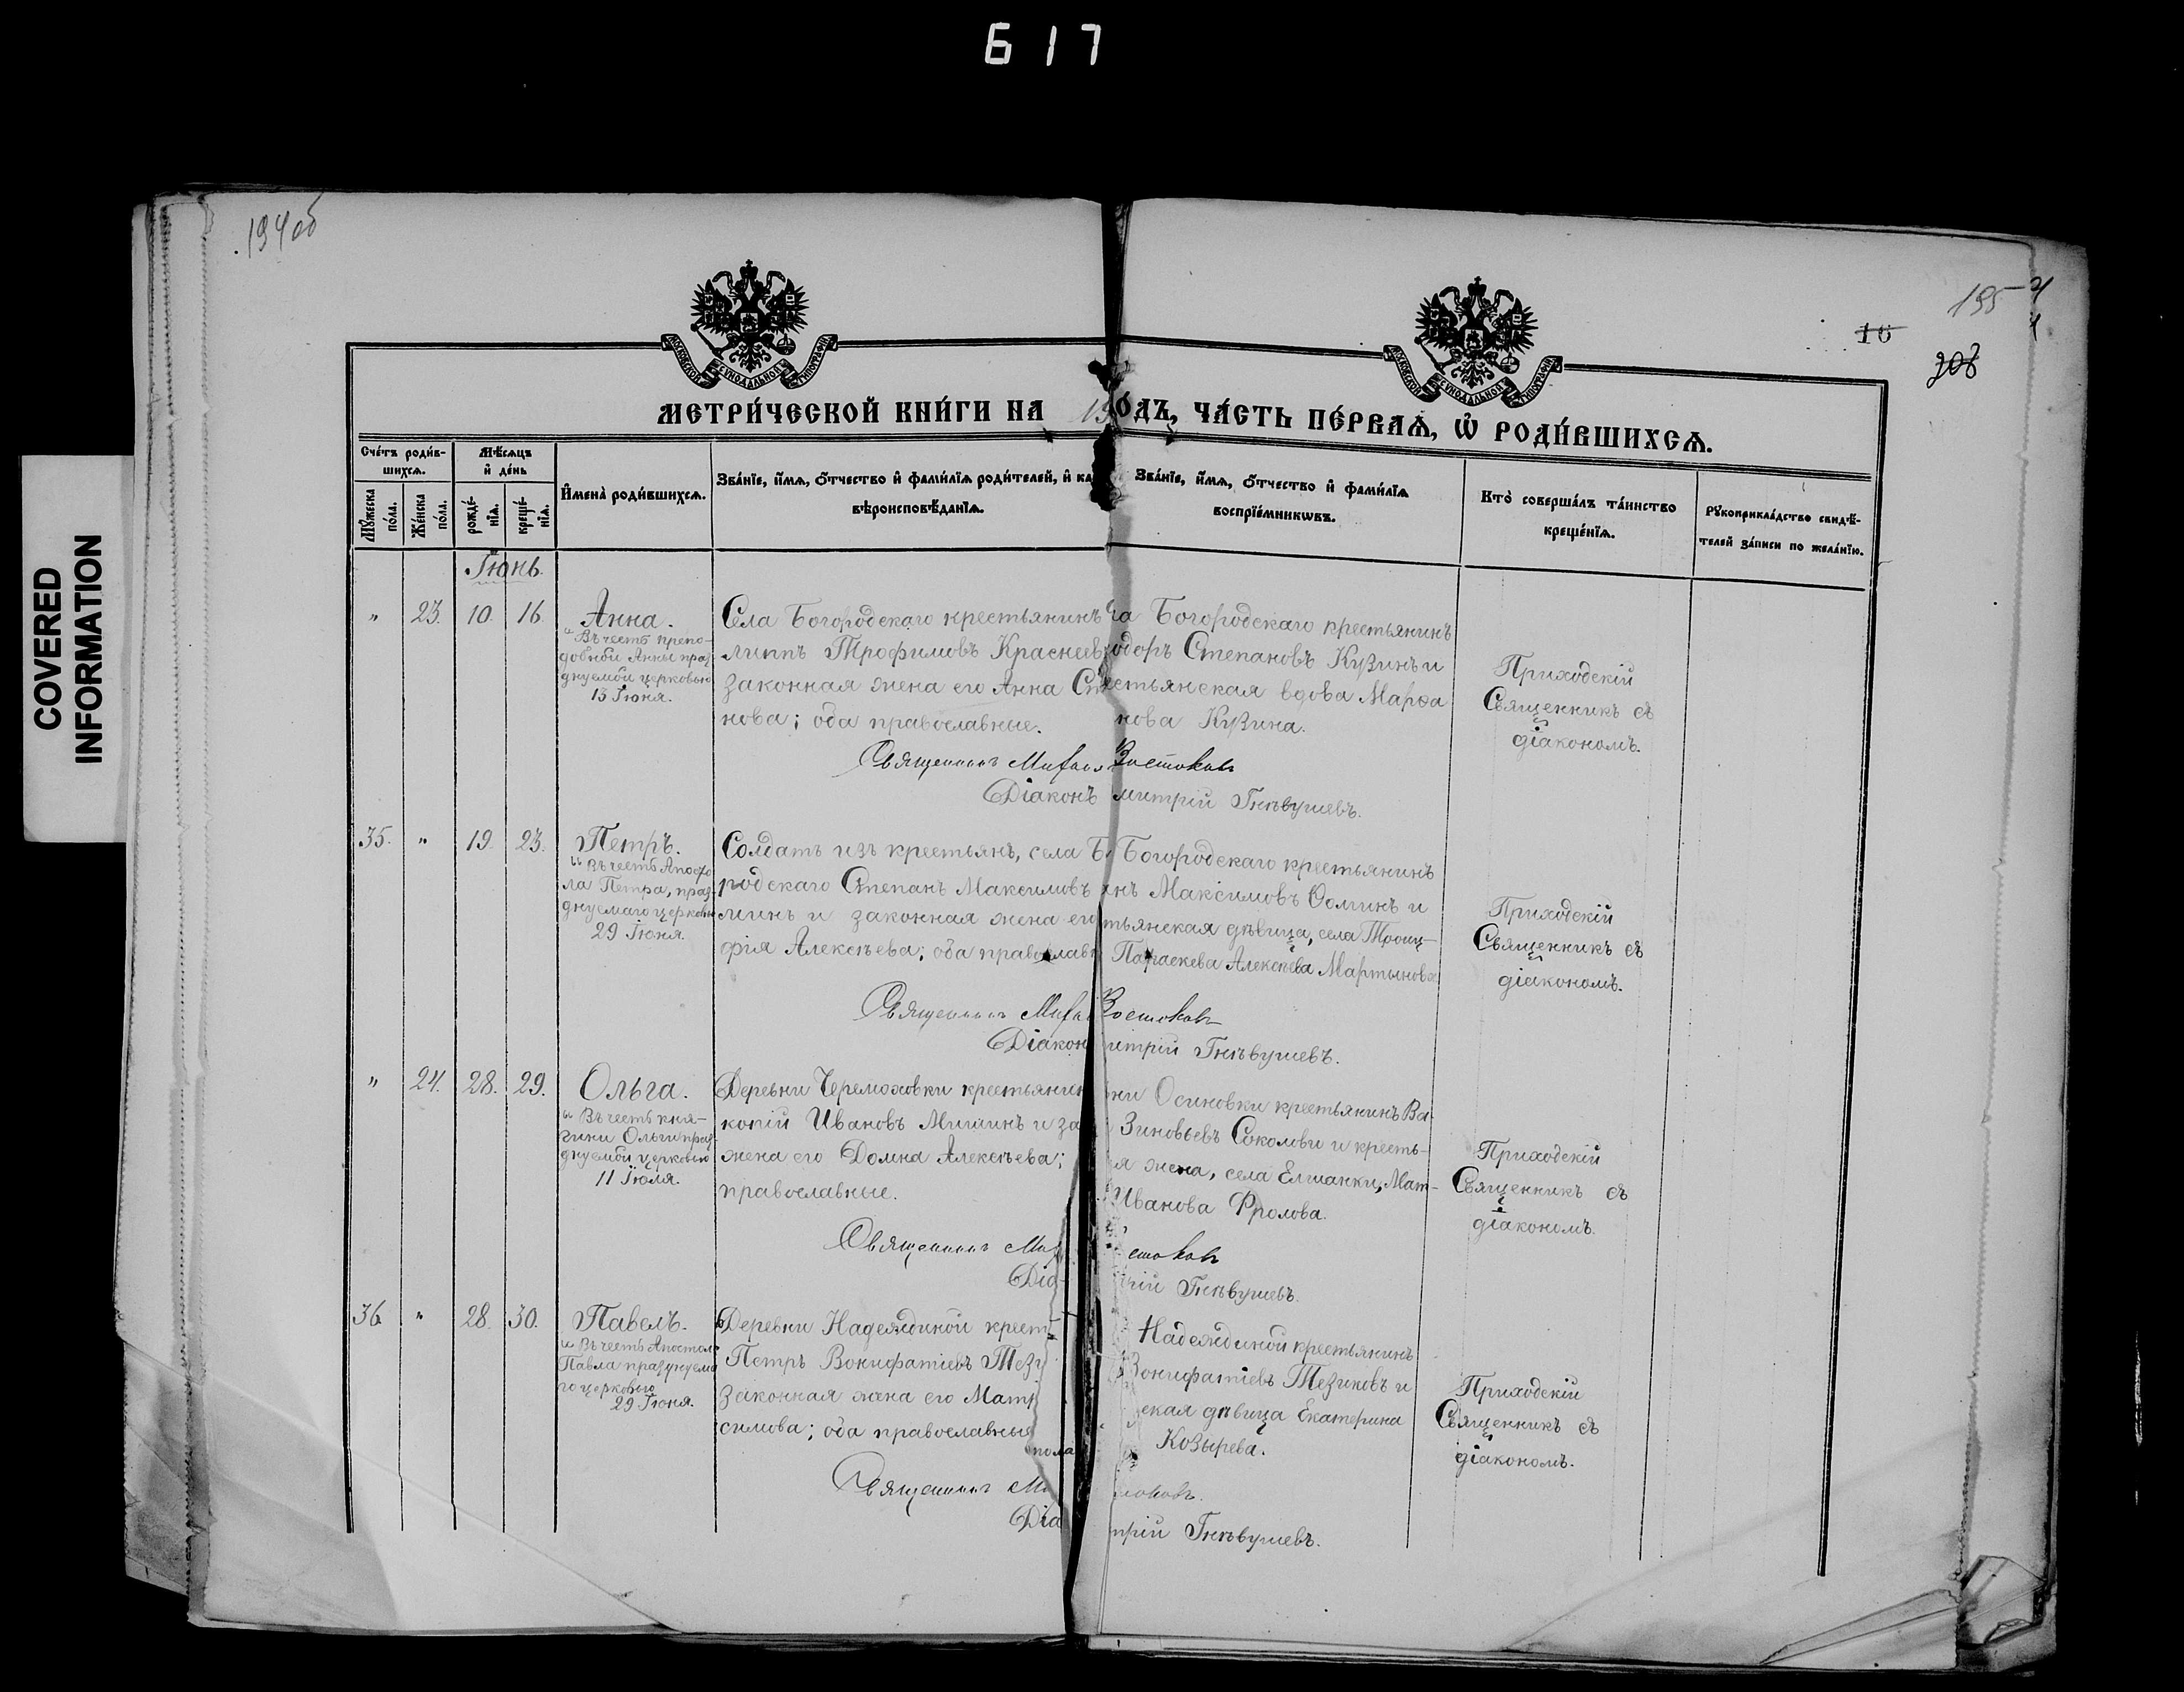 617
COVERED
INFORMATION
194об
195
16
208
МОСКОВСКОЙ СѴНОДАЛЬНОЙ ТИПОГРАФІИ
МОСКОВСКОЙ СѴНОДАЛЬНОЙ ТИПОГРАФІИ
МЕТРИ́ЧЕСКОЙ КНИ́ГИ НА 19 О́ДЪ, ЧА́СТЬ ПЕ́РВАѦ, Ѡ҆ РОДИ́ВШИХСѦ.
Сче́тъ роди́в-
шихсѧ.
Мѣ́сѧцъ
и҆ де́нь
Мꙋ́жеска
по́ла.
Же́нска
по́ла.
рожде́-
нїѧ.
креще́-
нїѧ.
И҆мена̀ роди́вшихсѧ.
Зва́нїе, и҆́мѧ, о҆́тчество и҆ фами́лїѧ роди́телей, и҆ ка
вѣроисповѣ́данїѧ.
Зва́нїе, и҆́мѧ, о҆́тчество и҆ фами́лїѧ
воспрїе́мникѡвъ.
Кто̀ соверша́лъ та́инство
креще́нїѧ.
Рꙋкоприкла́дство свидѣ́-
телей за́писи по жела́нїю.
Іюнь.
" 23. 10. 16.
Анна.
"Въ честь препо-
добной Анны праз-
днуемой церковью
13 Іюня.
Села Богородскаго крестьянинъ
липпъ Трофимовъ Краснеев
законная жена его Анна Ст
нова; оба православные.
ла Богородскаго крестьянинъ
одоръ Степановъ Кузинъ и
естьянская вдова Марѳа
нова Кузина.
Приходскій
Священникъ съ
діакономъ.
Священникъ Михаил Востоковъ
Діаконъ митрій Гнѣвушевъ.
35. " 19. 23.
Петръ.
"Въ честь Апосто
ла Петра, праз-
днуемаго церковью
29 Іюня.
Солдатъ изъ крестьянъ, села Б
родскаго Степанъ Максимовъ
минъ и законная жена его
фія Алексѣева; оба православн
Богородскаго крестьянинъ
нъ Максимовъ Ѳоминъ и
тьянская дѣвица, села Троиц-
Параскева Алексѣева Мартынова
Приходскій
Священникъ съ
діакономъ.
Священникъ Михаи Востоковъ
Діакон итрій Гнѣвушевъ.
" 24. 28. 29.
Ольга.
"Въ честь кня-
гини Ольги праз-
днуемой церковью
11 Іюля.
Деревни Черемховки крестьянин
копій Ивановъ Мишинъ и за
жена его Домна Алексѣева;
православные.
ни Осиновки крестьянинъ Ва-
Зиновьевъ Соколовъ и кресть-
я жена, села Елшанки, Мат-
Иванова Фролова.
Приходскій
Священникъ съ
діакономъ.
Священникъ Мих стоковъ
Діа рій Гнѣвушевъ.
36. " 28. 30.
Павелъ.
"Въ честь Апостола
Павла празднуема
го церковью
29 Іюня.
Деревни Надеждиной крест
Петръ Вонифатіевъ Тезу
законная жена его Матр
симова; оба православные
Надеждиной крестьянинъ
Вонифатіевъ Тезиковъ и
ская дѣвица Екатерина
Козырева.
Приходскій
Священникъ съ
діакономъ.
Священникъ Ми токовъ.
Діа трій Гнѣвушевъ.